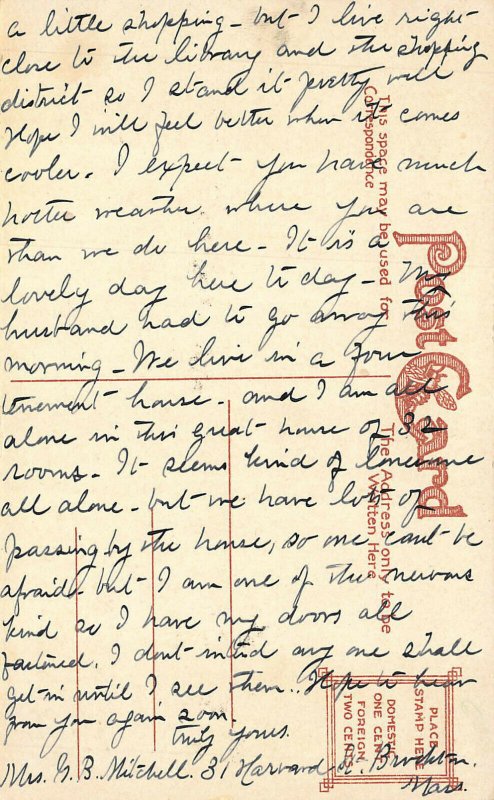 a little shopping - but I live right
close to the library and the shopping
district so I stand it pretty well
Hope I will feel better when it comes
cooler. I expect you have much
hotter weather where you are
than we do here - It is a
lovely day here to day - My
husband had to go away this
morning - We live in a four
tenement house - and I am all
alone in this great house of 32
rooms. It seems kind of lonesome
all alone - but we have lots of
passing by the house, so one can't be
afraid - but I am one of the nervous
kind so I have my doors all
fastened. I dont intend any one shall
get in until I see them. Hope to hear
from you again soon.
Truly yours.
Mrs. G. B. Mitchell. 31 Harvard St. Brockton.
Mass.
Post Card
This space may be used for
Correspondence
The Address only to be
Written Here
PLACE
STAMP HERE
DOMESTIC
ONE CENT
FOREIGN
TWO CENTS